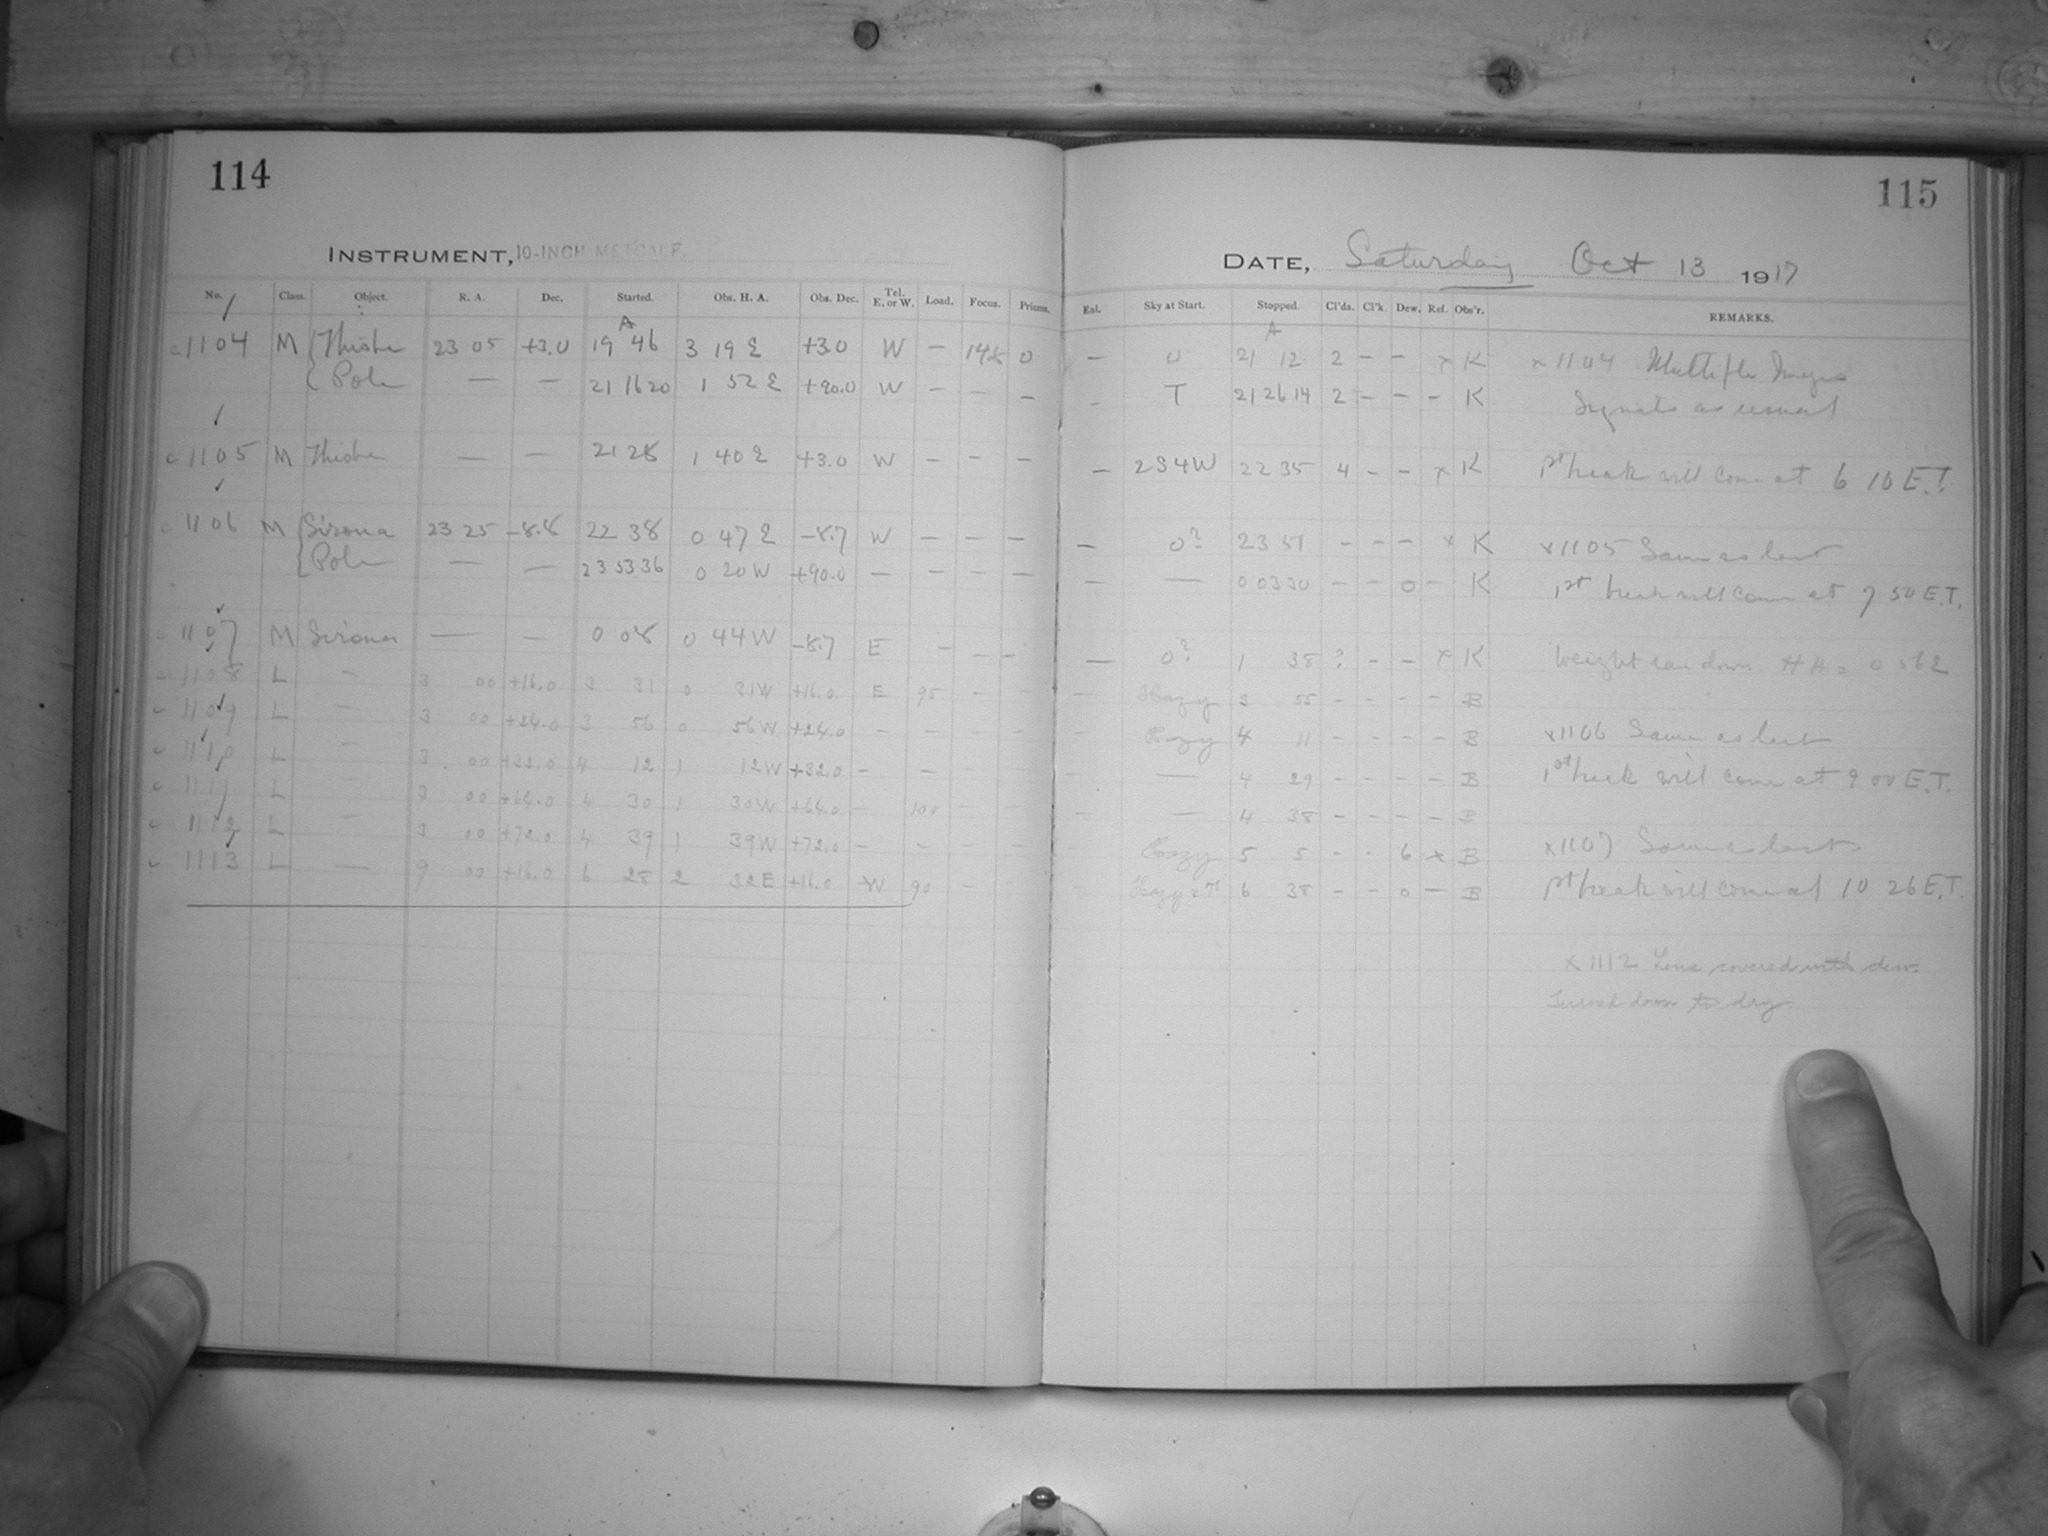 114
INSTRUMENT, 10-INCH METCALF.
No. Class. Object. R. A. Dec. Started. Obs. H. A. Obs. Dec. Tel. E. or W. Load. Focus. Prisms.
A
c 1104 M Thisbe 23 05 +3.0 19 46 3 19 E +3.0 W — 148 0
Pole — — 21 16 20 1 52 E +90.0 W — — —
c 1105 M Thisbe — — 21 28 1 40 E +3.0 W — — —
c 1106 M Sirona 23 25 -8.8 22 38 0 47 E -8.7 W — — —
Pole — — 23 53 36 0 20 W +90.0 — — — —
c 1107 M Sirona — — 0 08 0 44 W -8.7 E - — —
c 1108 L — 3 00 +16.0 3 31 0 31 W +16.0 E 95 - -
c 1109 L — 3 00 +24.0 3 56 0 56 W +24.0 - - - -
c 1110 L — 3 00 +32.0 4 12 1 12 W +32.0 - - - -
c 1111 L — 3 00 +64.0 4 30 1 30 W +64.0 - 100 - -
c 1112 L — 3 00 +72.0 4 39 1 39 W +72.0 - - - -
c 1113 L — 9 00 +16.0 6 28 2 32 E +16.0 W 90 - -
115
DATE, Saturday Oct 13 1917
Sky at Start. Stopped. Cl'ds. Cl'k. Dew. Ref. Obs'r. REMARKS.
A
— 0 21 12 2 - - x K x 1104 Multiple Images
- T 21 26 14 2 - - - K Signals as usual
— 2S4W 22 35 4 - - x K 1st break will come at 6 10 E.T.
— 0? 23 51 - - - x K x 1105 Same as last
— — 0 03 30 - - 0 - K 1st break will come at 7 50 E.T.
— 0? 1 38 ? - - x K Weight ran down. HA =
— Hazy 3 55 - - - - B
— Hazy 4 11 - - - - B x 1106 Same as last
— — 4 29 - - - - B 1st break will come at 9 00 E.T.
— — 4 38 - - - - B
Hazy 5 5 - - 6 x B x 1107 Same as last
Hazy 6 38 - - 0 — B 1st break will come at 10 26 E.T.
x 1112 Lens covered with dew.
Turned down to dry.